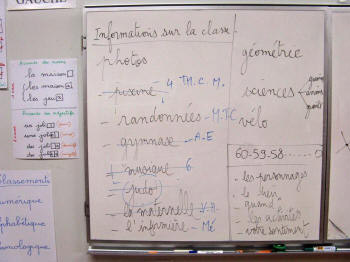 GAUCHE
Informations sur la classe
photos
piscine 4 M.C M.
- randonnées - M.T.C
- gymnase - A-E
+ musique 6
+ (judo)
- la maternelle V.A.
- l'infirmière - Mé
géométrie
sciences
vélo
60-59-58.......0
- les personnages
- le lieu
- quand
- les activités
- votre sentiment
la maison
les maison
les jeu
un joli
une joli
des joli
des joli
Classements
numérique
alphabétique
chronologique